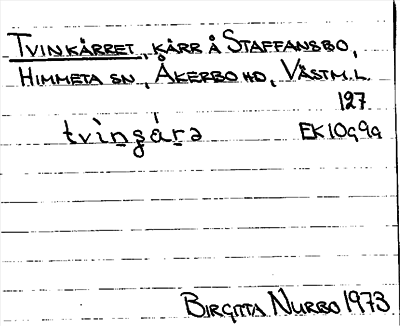 TVINKÄRRET, KÄRR Å STAFFANSBO,
HIMMETA SN, ÅKERBO HD, VÄSTM.L.
127
tvìngára EK10g9a
BIRGITTA NURBO 1973